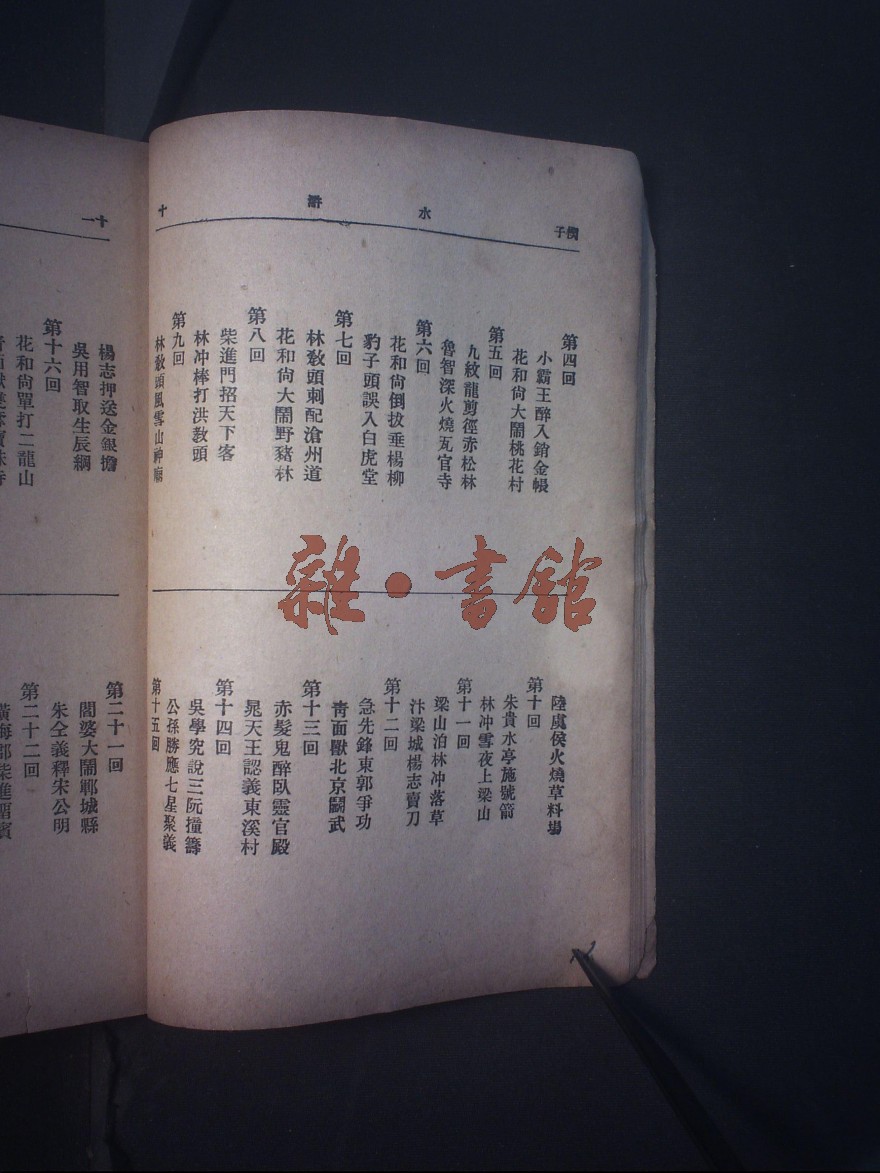 楔子
水
滸
十
第四回
小霸王醉入銷金帳
花和尙大鬧桃花村
第五回
九紋龍剪徑赤松林
魯智深火燒瓦官寺
第六回
花和尙倒拔垂楊柳
豹子頭誤入白虎堂
第七回
林敎頭刺配滄州道
花和尙大鬧野豬林
第八回
柴進門招天下客
林冲棒打洪敎頭
第九回
林敎頭風雪山神廟
陸虞侯火燒草料場
第十回
朱貴水亭施號箭
林冲雪夜上梁山
第十一回
梁山泊林冲落草
汴梁城楊志賣刀
第十二回
急先鋒東郭爭功
靑面獸北京鬭武
第十三回
赤髮鬼醉臥靈官殿
晁天王認義東溪村
第十四回
吳學究說三阮撞籌
公孫勝應七星聚義
第十五回
十一
楊志押送金銀擔
吳用智取生辰綱
第十六回
花和尙單打二龍山
第二十一回
閻婆大鬧鄆城縣
朱仝義釋宋公明
第二十二回
雜·書館